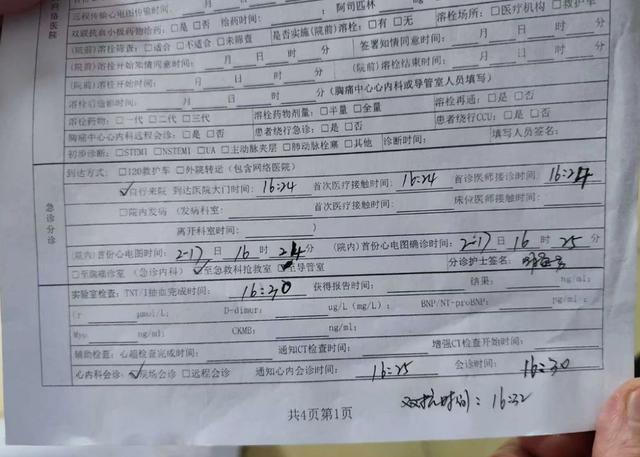 网络医院
远程传输心电图传输时间:
双联抗血小板药物给药: □是 □否 给药时间: 阿司匹林
(院前)溶栓筛查: □适合 □不适合 □未筛查 是否实施(院前)溶栓: □有 □无 溶栓场所: □医疗机构 □救护车
(院前)溶栓开始知情同意时间: 月 日 时 分 签署知情同意时间: 月 日 时 分
(院前)溶栓开始时间: 月 日 时 分 (院前)溶栓结束时间: 月 日 时 分
溶栓后造影时间: 月 日 时 分 (胸痛中心心内科或导管室人员填写)
溶栓药物: □一代 □二代 □三代 溶栓药物剂量: □半量 □全量 溶栓再通: □是 □否
胸痛中心心内科远程会诊: □是 □否 患者绕行急诊: □是 □否 患者绕行CCU: □是 □否
初步诊断: □STEMI □NSTEMI □UA □主动脉夹层 □肺动脉栓塞 □其他 诊断时间: 填写人员签名:
急诊分诊
到达方式: □120救护车 □外院转送(包含网络医院)
☑自行来院 到达医院大门时间: 16:24 首次医疗接触时间: 16:24 首诊医师接诊时间: 16:24
□院内发病 (发病科室: 首次医疗接触时间: 床位医师接触时间:
离开科室时间: )
(院内)首份心电图时间: 2-17日 16时 24分 (院内)首份心电图确诊时间: 2-17日 16时 25分
□至胸痛诊室(急诊内科) ☑至急救科抢救室 □至导管室 分诊护士签名:
实验室检查: TNT/I抽血完成时间: 16:30 获得报告时间: 结果: ng/ml;
Cr μmol/L; D-dimer: ug/L(mg/L); BNP/NT-proBNP: pg/ml;
Myo ng/ml; CKMB: ng/ml;
辅助检查: 心超检查完成时间: 通知CT检查时间: 增强CT检查开始时间:
心内科会诊: ☑现场会诊 □远程会诊 通知心内会诊时间: 16:25 会诊时间: 16:30
双抗时间: 16:32
共4页第1页